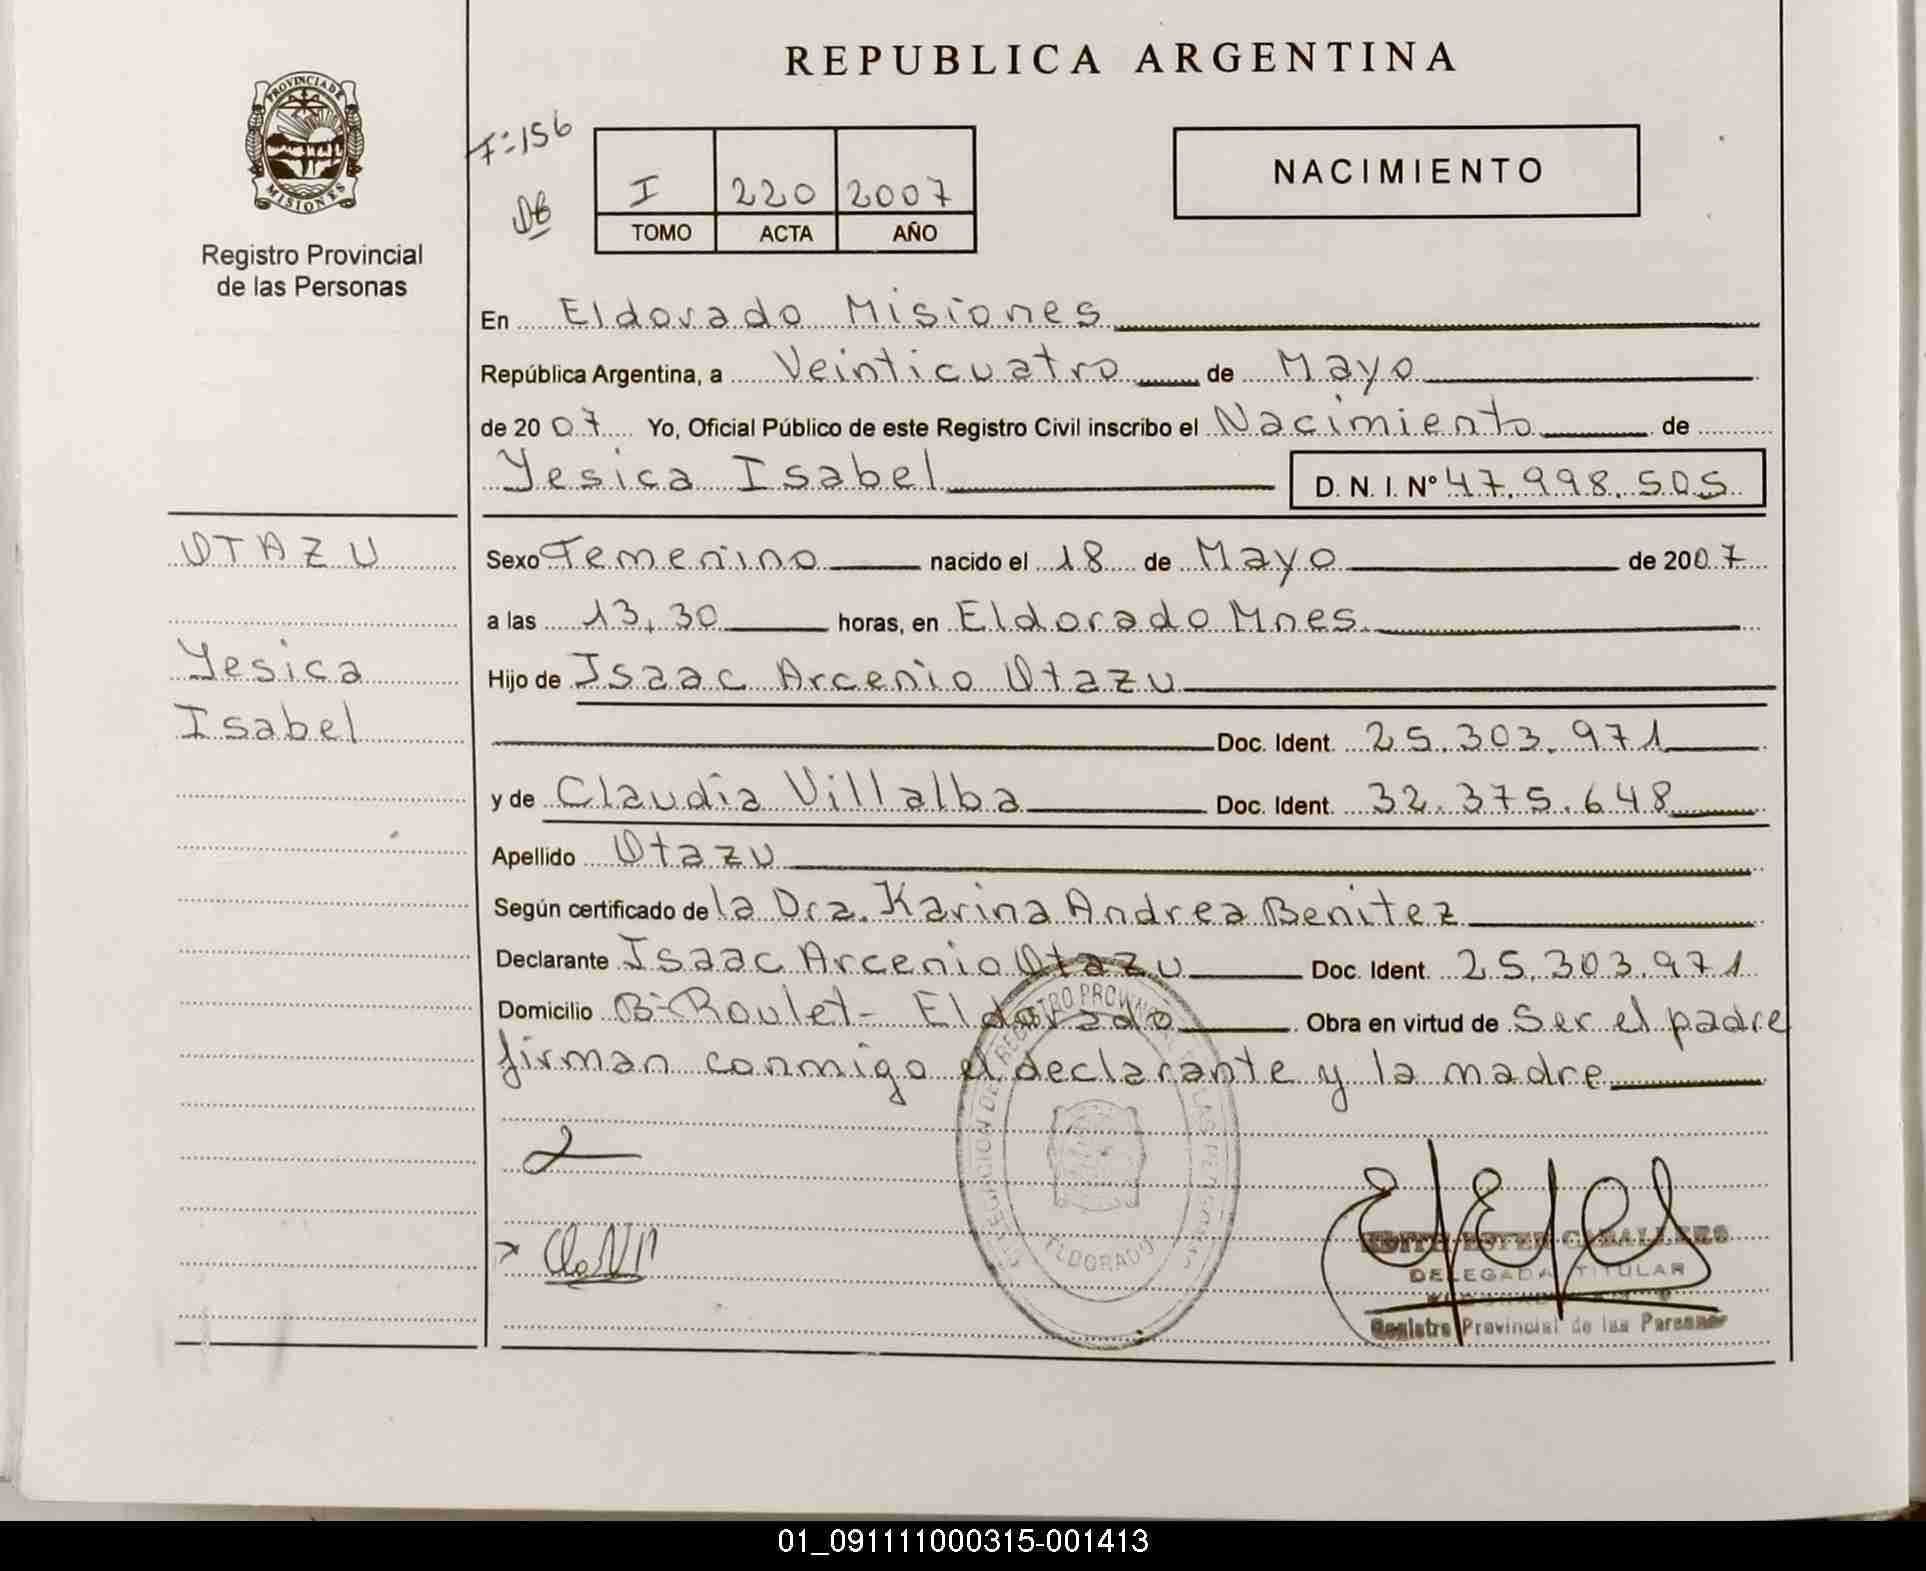 REPUBLICA ARGENTINA
PROVINCIA DE
MISIONES
Registro Provincial
de las Personas
F: 156
I 220 2007
TOMO ACTA AÑO
NACIMIENTO
En Eldorado Misiones
República Argentina, a Veinticuatro de Mayo
de 2007 Yo, Oficial Público de este Registro Civil inscribo el Nacimiento de
Yesica Isabel D. N. I. Nº 47.998.505
OTAZU
Yesica
Isabel
Sexo Femenino nacido el 18 de Mayo de 2007
a las 13,30 horas, en Eldorado Mnes.
Hijo de Isaac Arcenio Otazu
Doc. Ident. 25.303.971
y de Claudia Villalba Doc. Ident. 32.375.648
Apellido Otazu
Según certificado de la Dra. Karina Andrea Benitez
Declarante Isaac Arcenio Otazu Doc. Ident. 25.303.971
Domicilio Bº Roulet - Eldorado Obra en virtud de Ser el padre
firman conmigo el declarante y la madre
ELDORADO
EDITH ESTER CABALLERO
DELEGADA TITULAR
Registro Provincial de las Personas
01_091111000315-001413